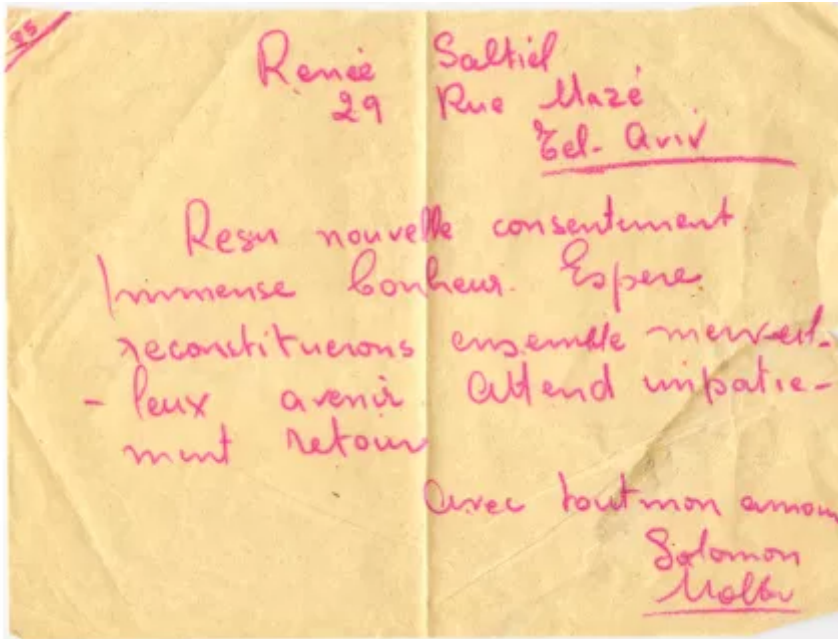 85
Renée Saltiel
29 Rue Mazé
Tel-Aviv
Resu nouvelle consentement
Immense bonheur. Espere
reconstituerons ensemble merveil-
- leux avenir attend impatie-
ment retour
avec tout mon amour
Solomon